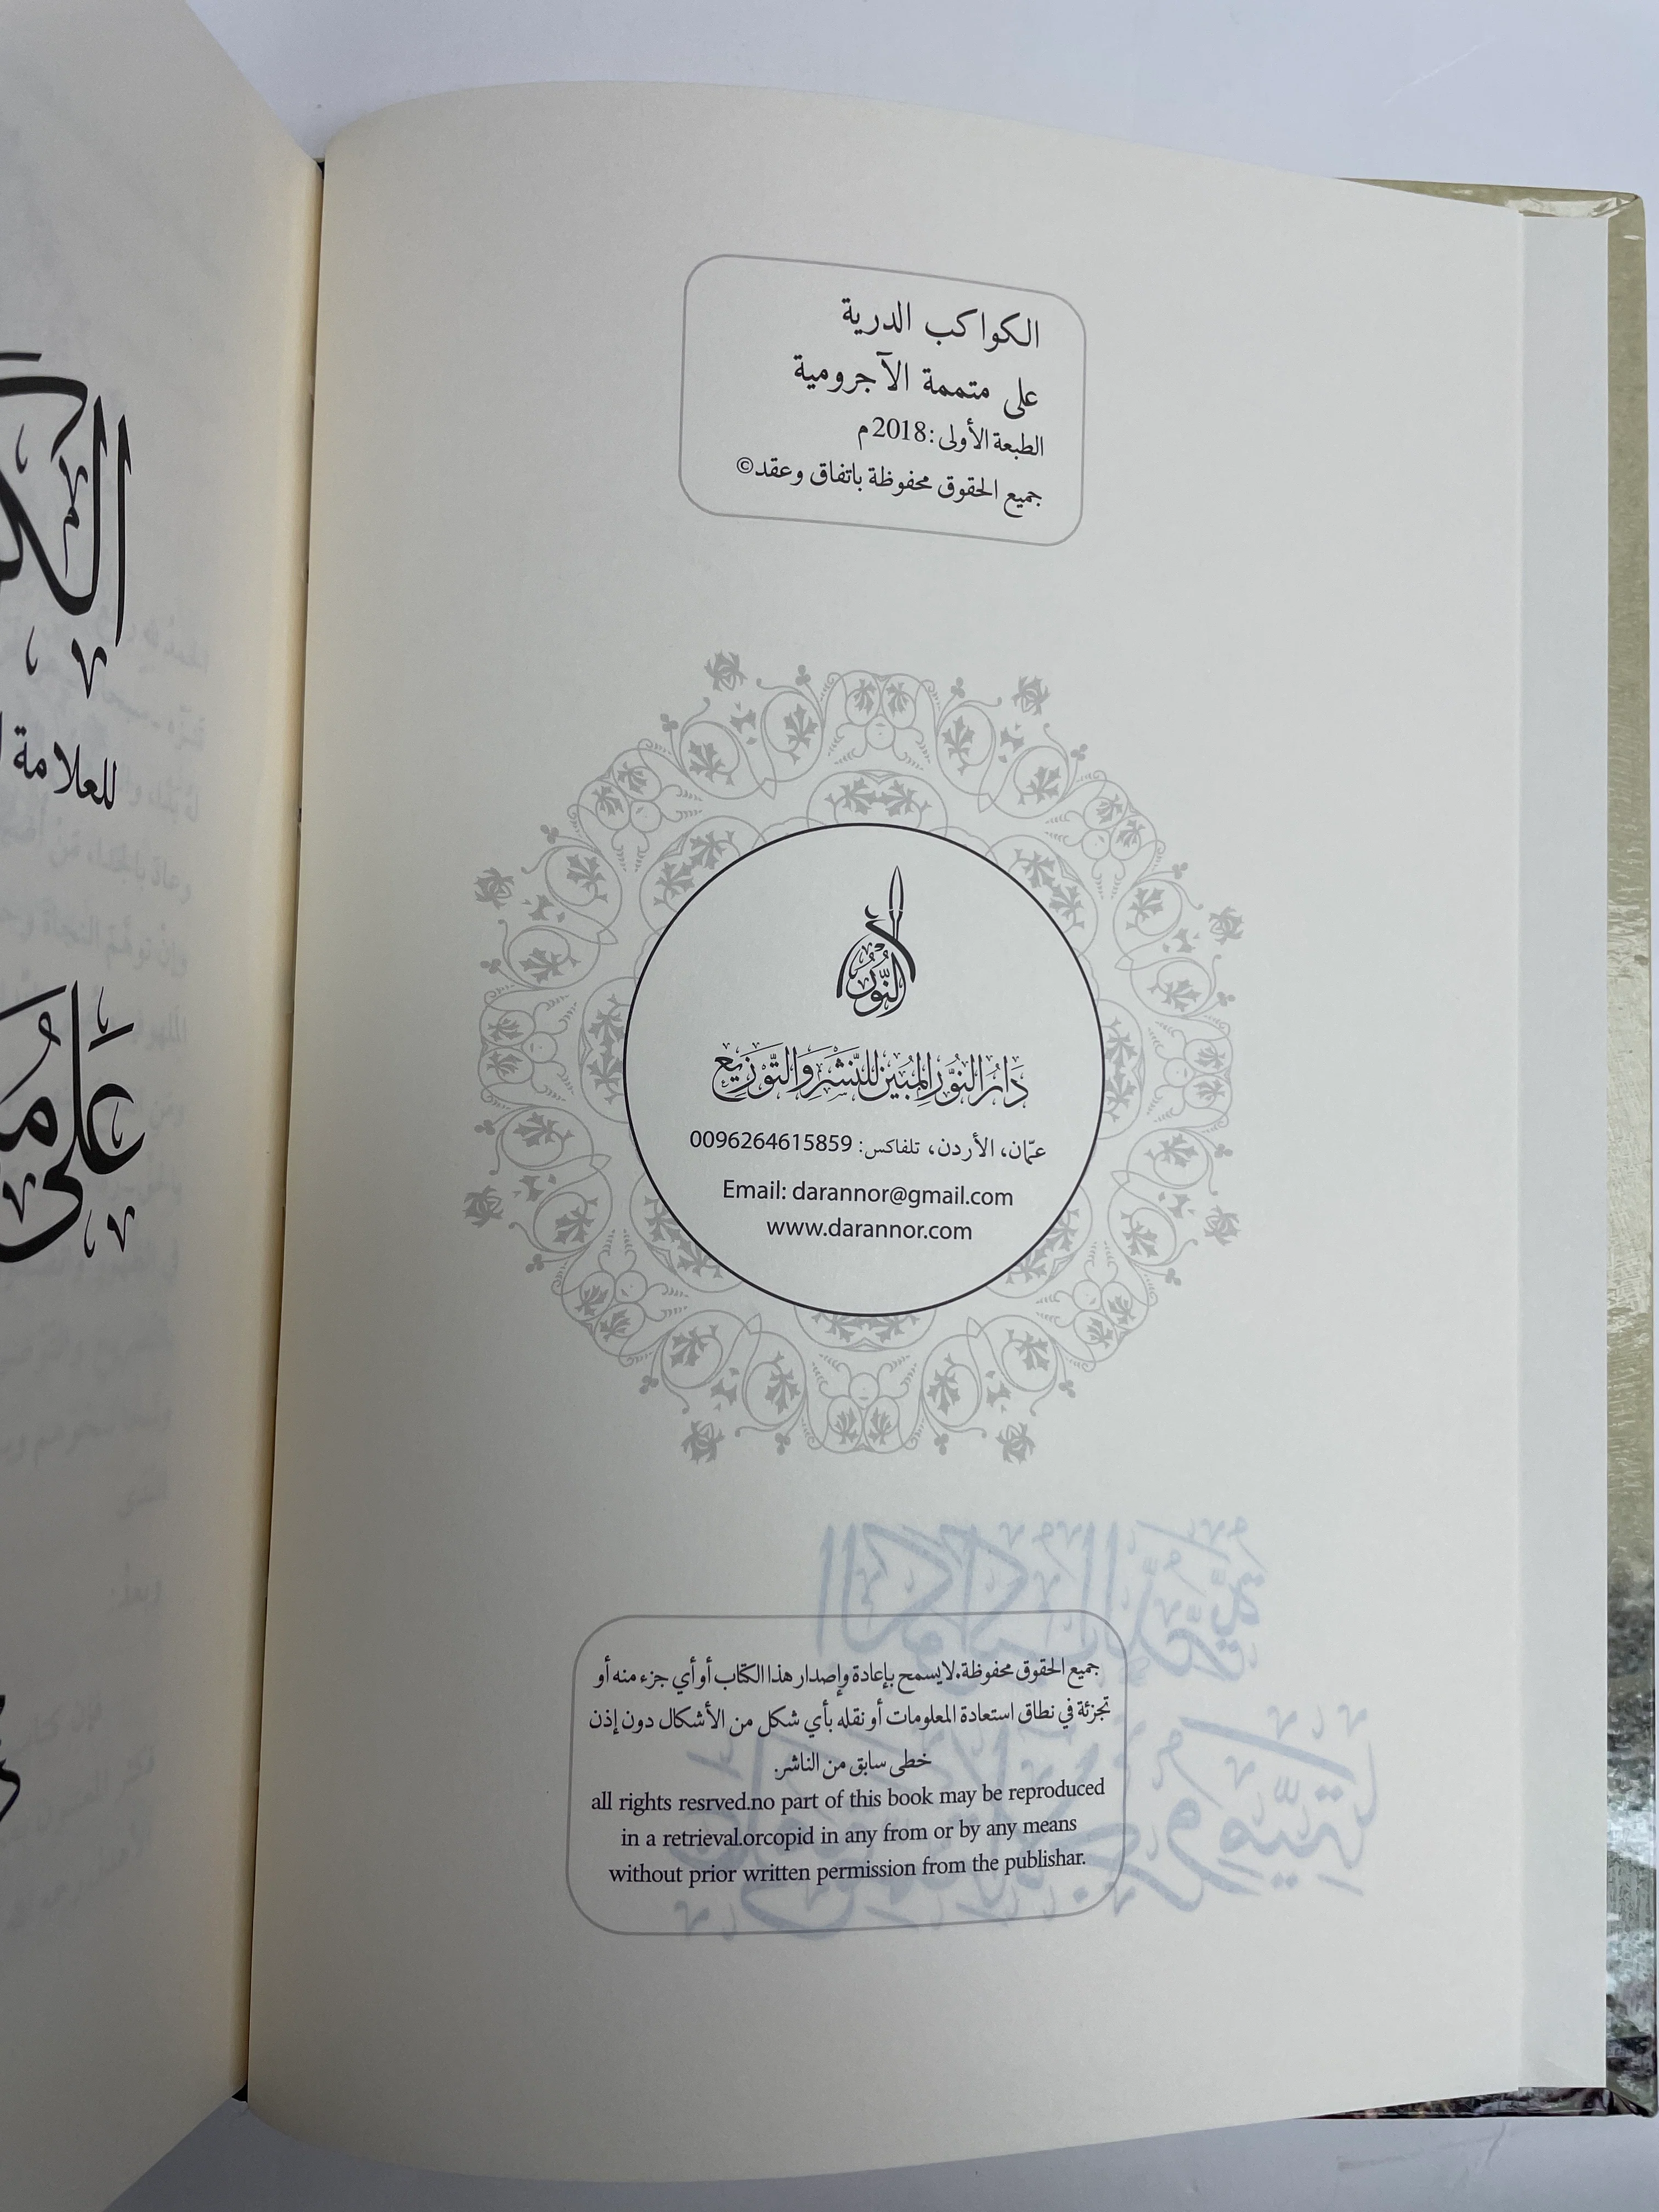 الكواكب الدرية
على متممة الآجرومية
الطبعة الأولى: 2018م
جميع الحقوق محفوظة باتفاق وعقد©
النور
دَارُ النُّورِ المُبِين لِلنَّشْرِ وَالتَّوْزِيع
عمّان، الأردن، تلفاكس: 0096264615859
Email: darannor@gmail.com
www.darannor.com
جميع الحقوق محفوظة.لايسمح بإعادة وإصدار هذا الكتاب أو أي جزء منه أو
تجزئة في نطاق استعادة المعلومات أو نقله بأي شكل من الأشكال دون إذن
خطى سابق من الناشر.
all rights resrved.no part of this book may be reproduced
in a retrieval.orcopid in any from or by any means
without prior written permission from the publishar.
للعلامة
عَلَى